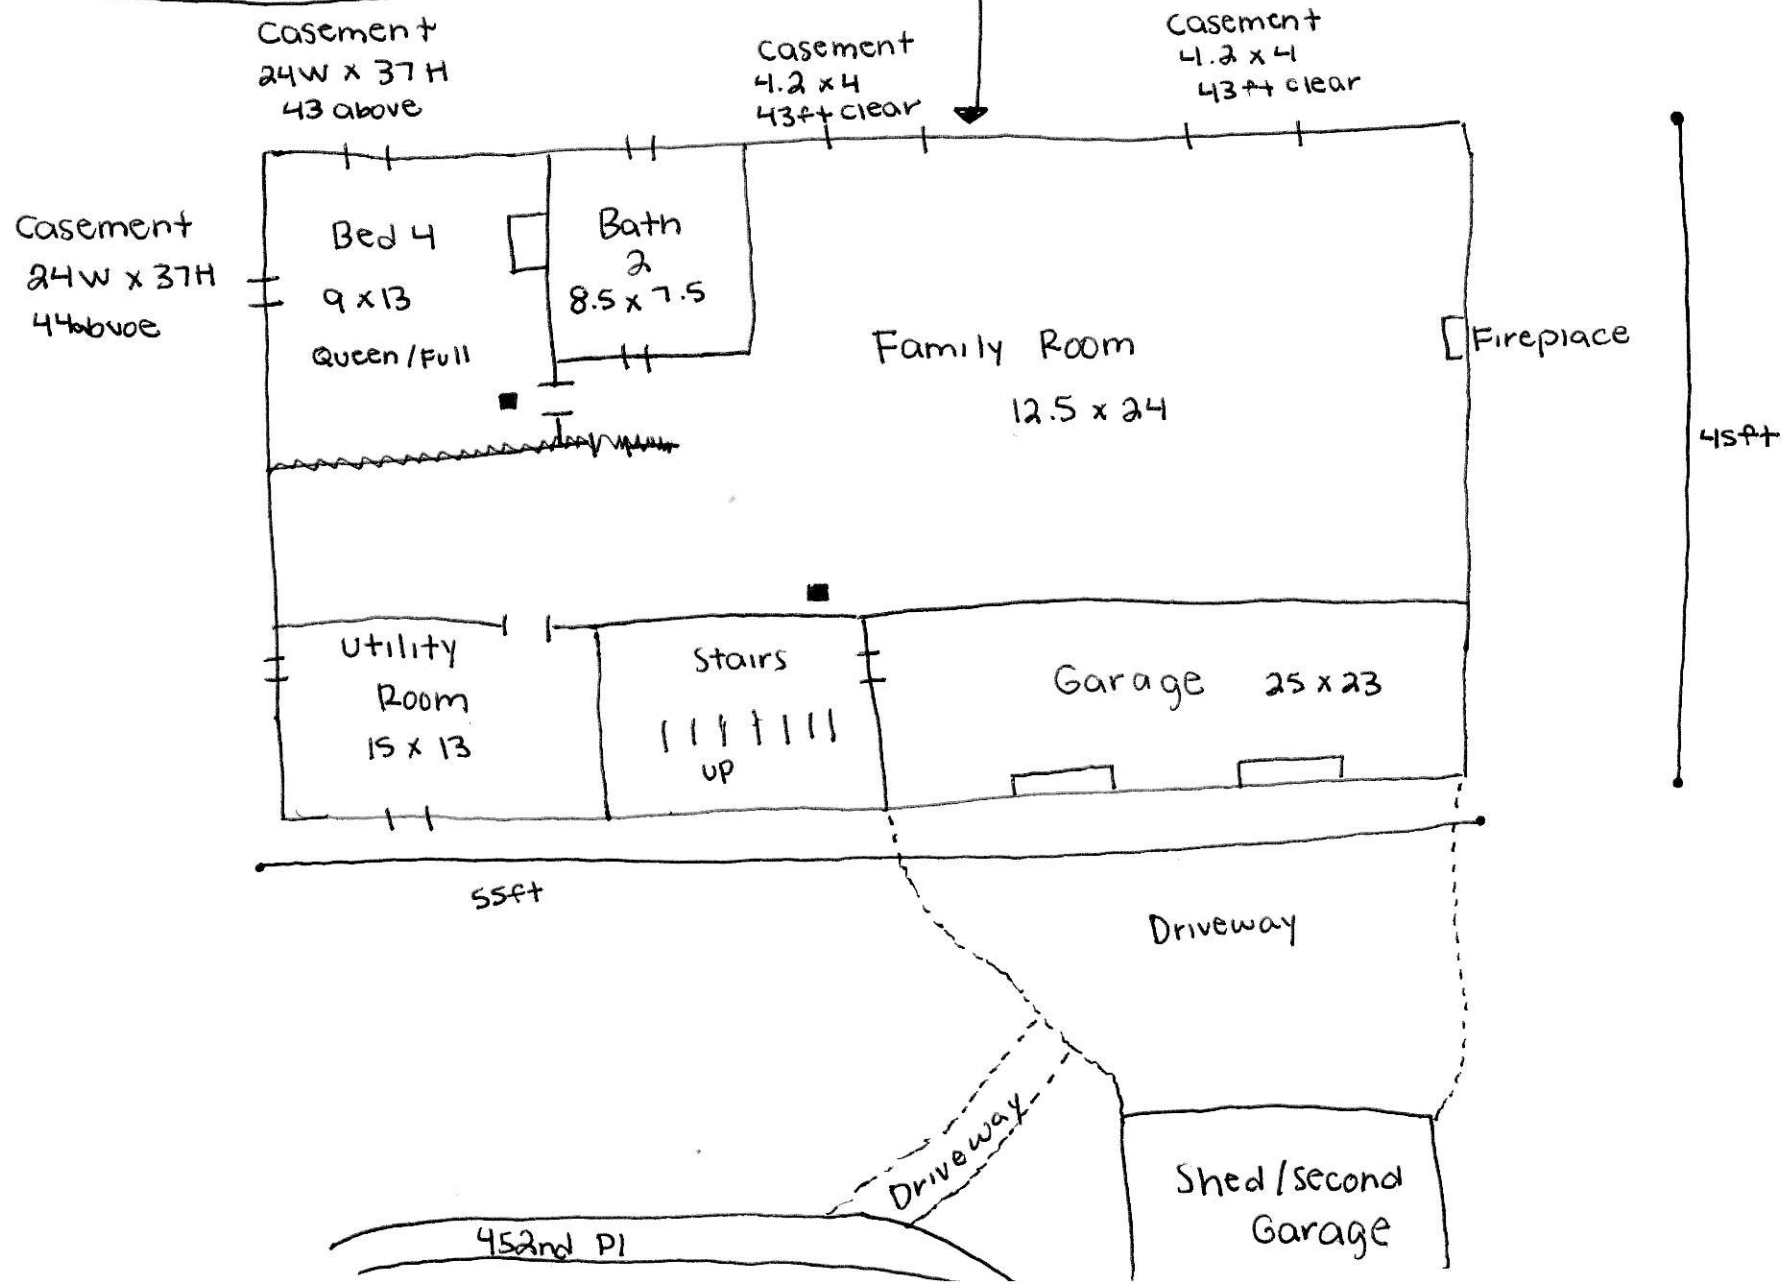 Casement
24W x 37H
43 above
Casement
4.2 x 4
43ft clear
Casement
4.2 x 4
43ft clear
Casement
24W x 37H
44abvoe
Bed 4
9 x 13
Queen/Full
Bath
2
8.5 x 7.5
Family Room
12.5 x 24
Fireplace
45ft
Utility
Room
15 x 13
Stairs
UP
Garage 25 x 23
55ft
Driveway
Driveway
Shed/second
Garage
452nd Pl